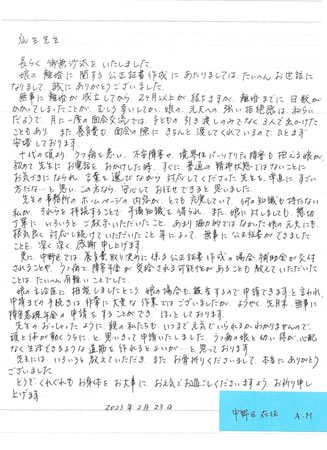 先生
長らく御無沙汰をいたしました。
娘の離婚に関する公正証書作成にあたりましては、たいへんお世話に
なりまして、誠にありがとうございました。
無事に離婚が成立してから、2ヶ月以上が経ちますが、離婚までに日数が
かかってしまったことが、むしろ幸いしてか、娘の、元夫への強い拒絶感は、和らい
だようで、月に一度の面会交流では、子どもの引き渡しのみでなく3人で出かけた
こともあり、また養育費も面会の際に きちんと 渡してくれているので、ひとまず
安堵しております。
十代の頃より、うつ病を患い、不安障害や、境界性パーソナリティ障害も抱える娘が、
初めて先生に お電話を おかけした時、すぐに 普通の精神状態ではないことに
お気づきになられ、言葉を選びながら 対応してくださった先生を、
だな…と思い、この方なら、安心して お任せできると思いました。
先生の事務所の ホームページの内容が、とても充実していて、何の知識も持たない
私が、それらを拝読することで 予備知識を得られ、また 娘に対しましても、懇切
丁寧に、いろいろと ご教示いただいたこと、あまり協力的ではなかった娘の元夫にも、
根気良く 対応し続けていただいたこと等によって、無事に公正証書ができました
ことを、深く深く 感謝申し上げます。
更に、中野区では、養育費取り決めに係る公正証書作成の場合、補助金が交付
されることや、うつ病で障害年金が 受給される可能性があることも教えていただいた
ことは、たいへん有難いことでした。
娘の主治医に 相談しましたところ、娘の場合も、該当するので申請できますと言われ、
申請までの手続きは 非常に大変な作業ではございましたが、ようやく先月末、無事に
障害基礎年金の申請を することができ、ほっとしております。
先生のおっしゃったように 親の私たちも いつまで元気でいられるかわかりませんので、
頭と体が動くうちに、と思いきって申請いたしました。うつ病の娘と幼い孫が、心配
なく生活できるような道筋を作れるとよいが… と思っております。
先生には、いろいろと教えていただき、またお骨折りくださいまして、本当にありがとう
ございました。
どうぞくれぐれも お身体を お大事に、お元気でお過ごしくださいますよう お祈り申し
上げます。
2023年2月23日
中野区在住 A.M